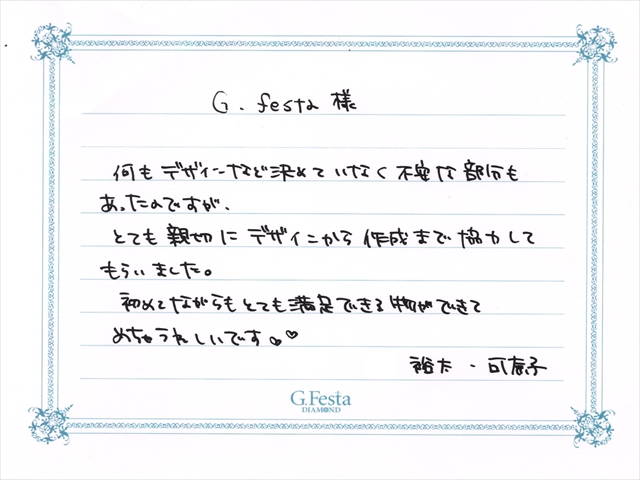 G. festa 様
何もデザインなど決めていなく不安な部分も
あったのですが、
とても親切にデザインから作成まで協力して
もらいました。
初めてながらもとても満足できる物ができて
めちゃうれしいです♥♥
裕太・可恵子
G.Festa
DIAMOND